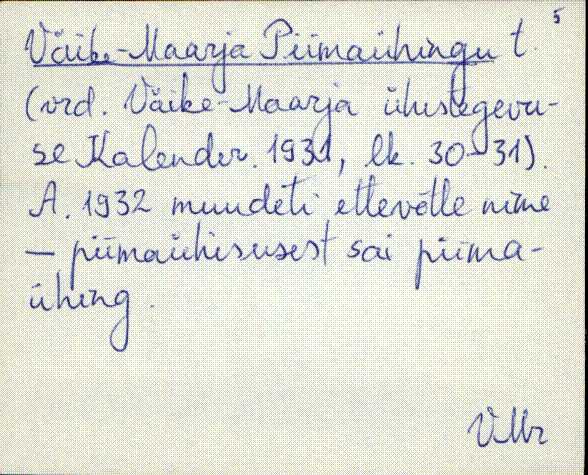 5
Väike-Maarja Piimaühingu t.
(vrd. Väike-Maarja ühistegevu-
se Kalender. 1931, lk. 30-31).
A. 1932 muudeti ettevõtte nime
— piimaühisusest sai piima-
ühing.
VMr